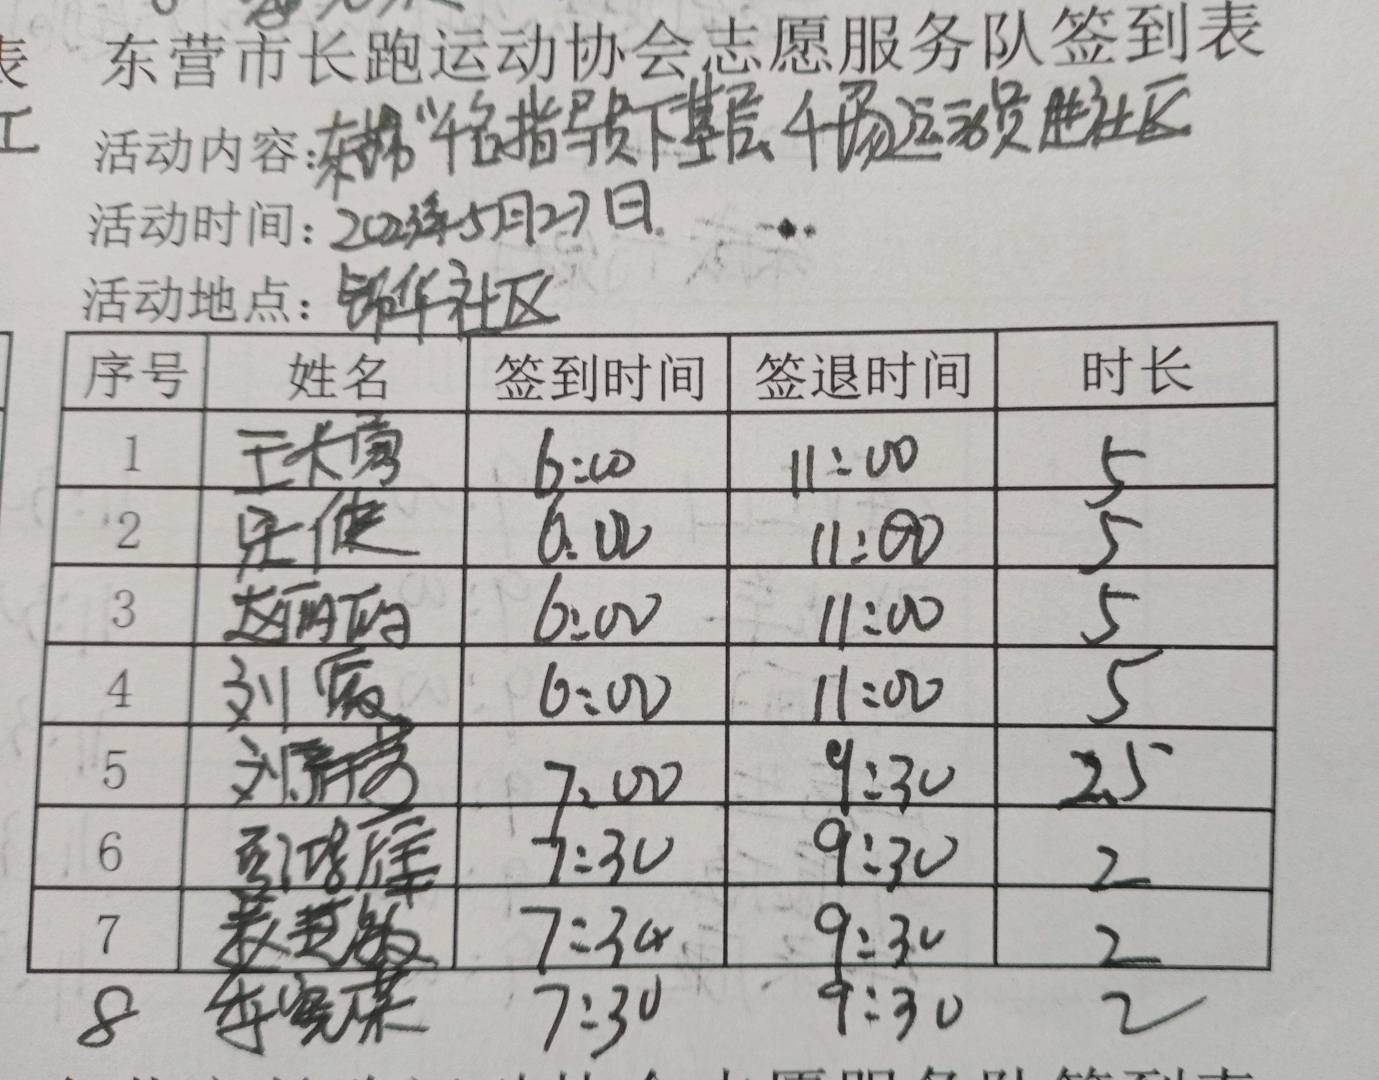 表
东营市长跑运动协会志愿服务队签到表
工
活动内容:东营“千名指导员下基层 千场运动员进社区
活动时间:2023年5月27日
活动地点:锦华社区
序号 姓名 签到时间 签退时间 时长
1 王大勇 6:00 11:00 5
2 6:00 11:00 5
3 赵丽丽 6:00 11:00 5
4 刘霞 6:00 11:00 5
5 刘 7:00 9:30 2.5
6 7:30 9:30 2
7 7:30 9:30 2
8 李晓 7:30 9:30 2
协会志愿服务队签到表